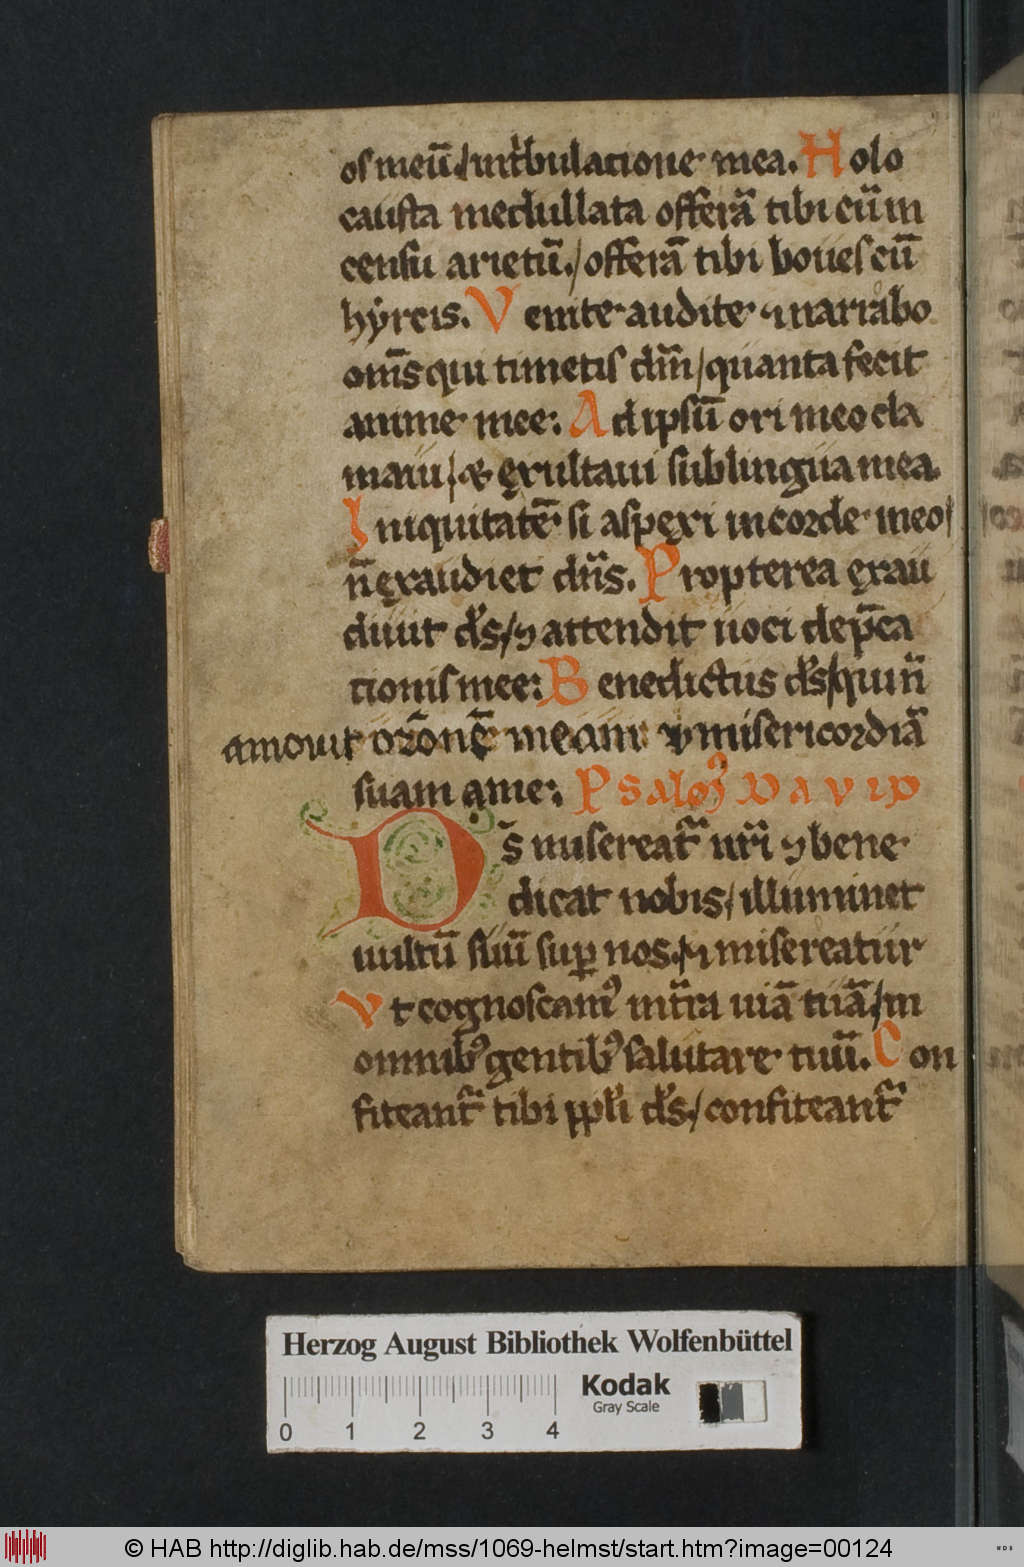 os meū / int͛bulatione mea. Holo
causta medullata offerā tibi cūm in
censu arietū. / offerā tibi boues cū
hẏrcis. Venite audite ⁊ narrabo
om̄s qui timetis dm̄ / quanta fecit
anime mee: Ad ipsū ori meo cla
maui / & exultaui sub lingua mea.
Iniquitatē si aspexi in corde meo /
n̄ exaudiet dn̄s. Propterea exau
diuit ds̄ / ⁊ attendit uoci dep̄ca
tionis mee: Benedictus ds̄ / qui n̄
amouit or̄onē meam ⁊ misericordiā
suam a me: Psalmꝯ DAVID
Ds̄ misereat᷑ nr̄i ⁊ bene
dicat nobis / illuminet
uultū suū sup̲ nos. / ⁊ misereatur
Vt cognoscamꝰ in tr̄ra uiā tuā / in
omnibꝰ gentibꝰ salutare tuū. Con
fiteant᷑ tibi ppl̄i ds̄ / confiteant᷑
Herzog August Bibliothek Wolfenbüttel
Kodak
Gray Scale
0 1 2 3 4
© HAB http://diglib.hab.de/mss/1069-helmst/start.htm?image=00124